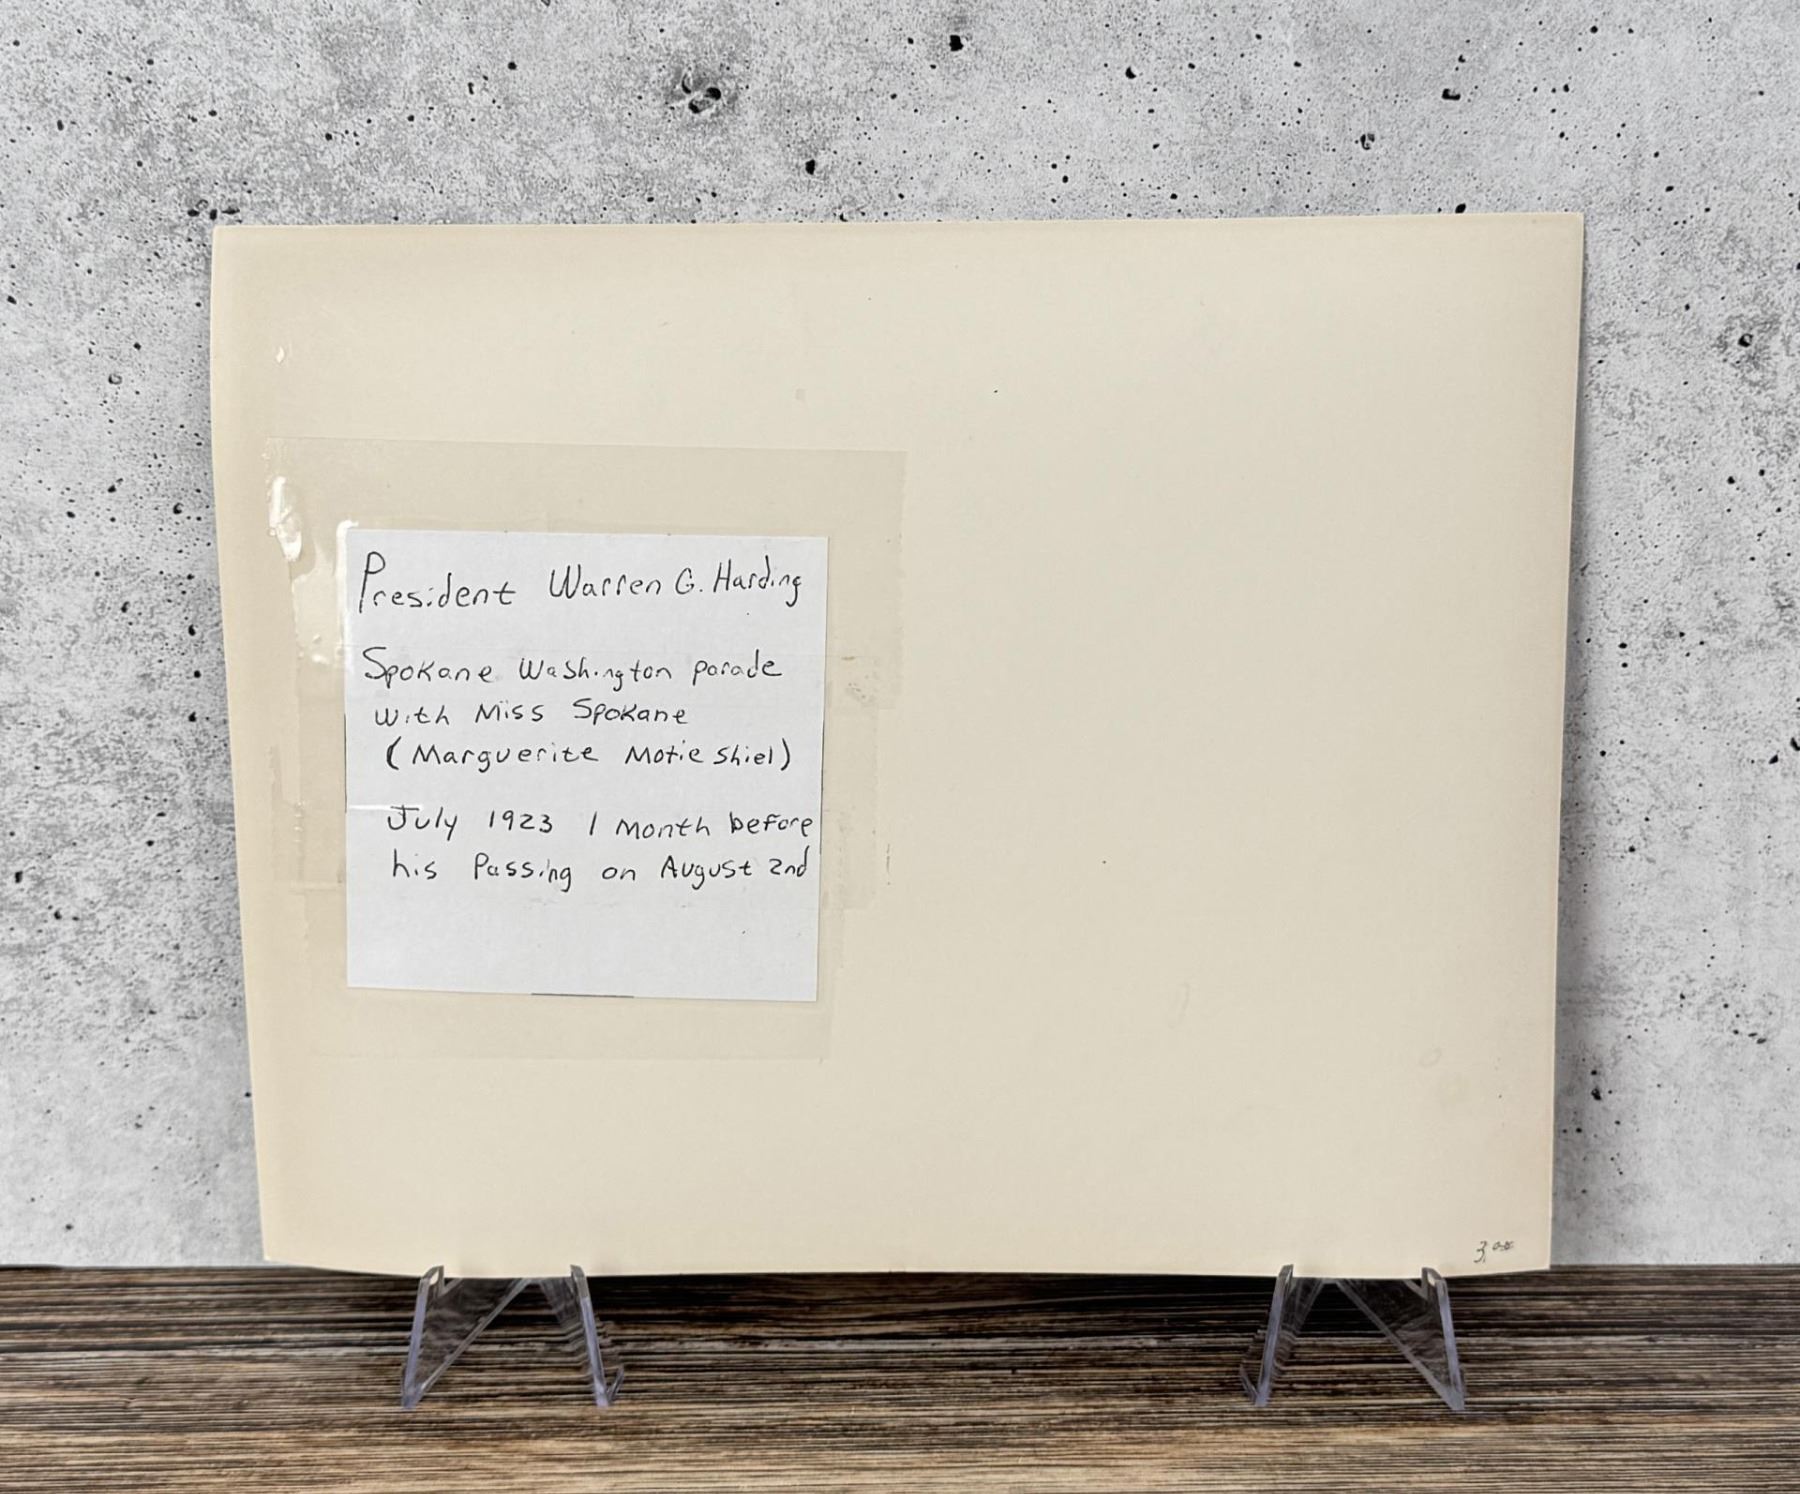 President Warren G. Harding
Spokane Washington parade
with Miss Spokane
(Marguerite Motie Shiel)
July 1923 1 Month before
his Passing on August 2nd